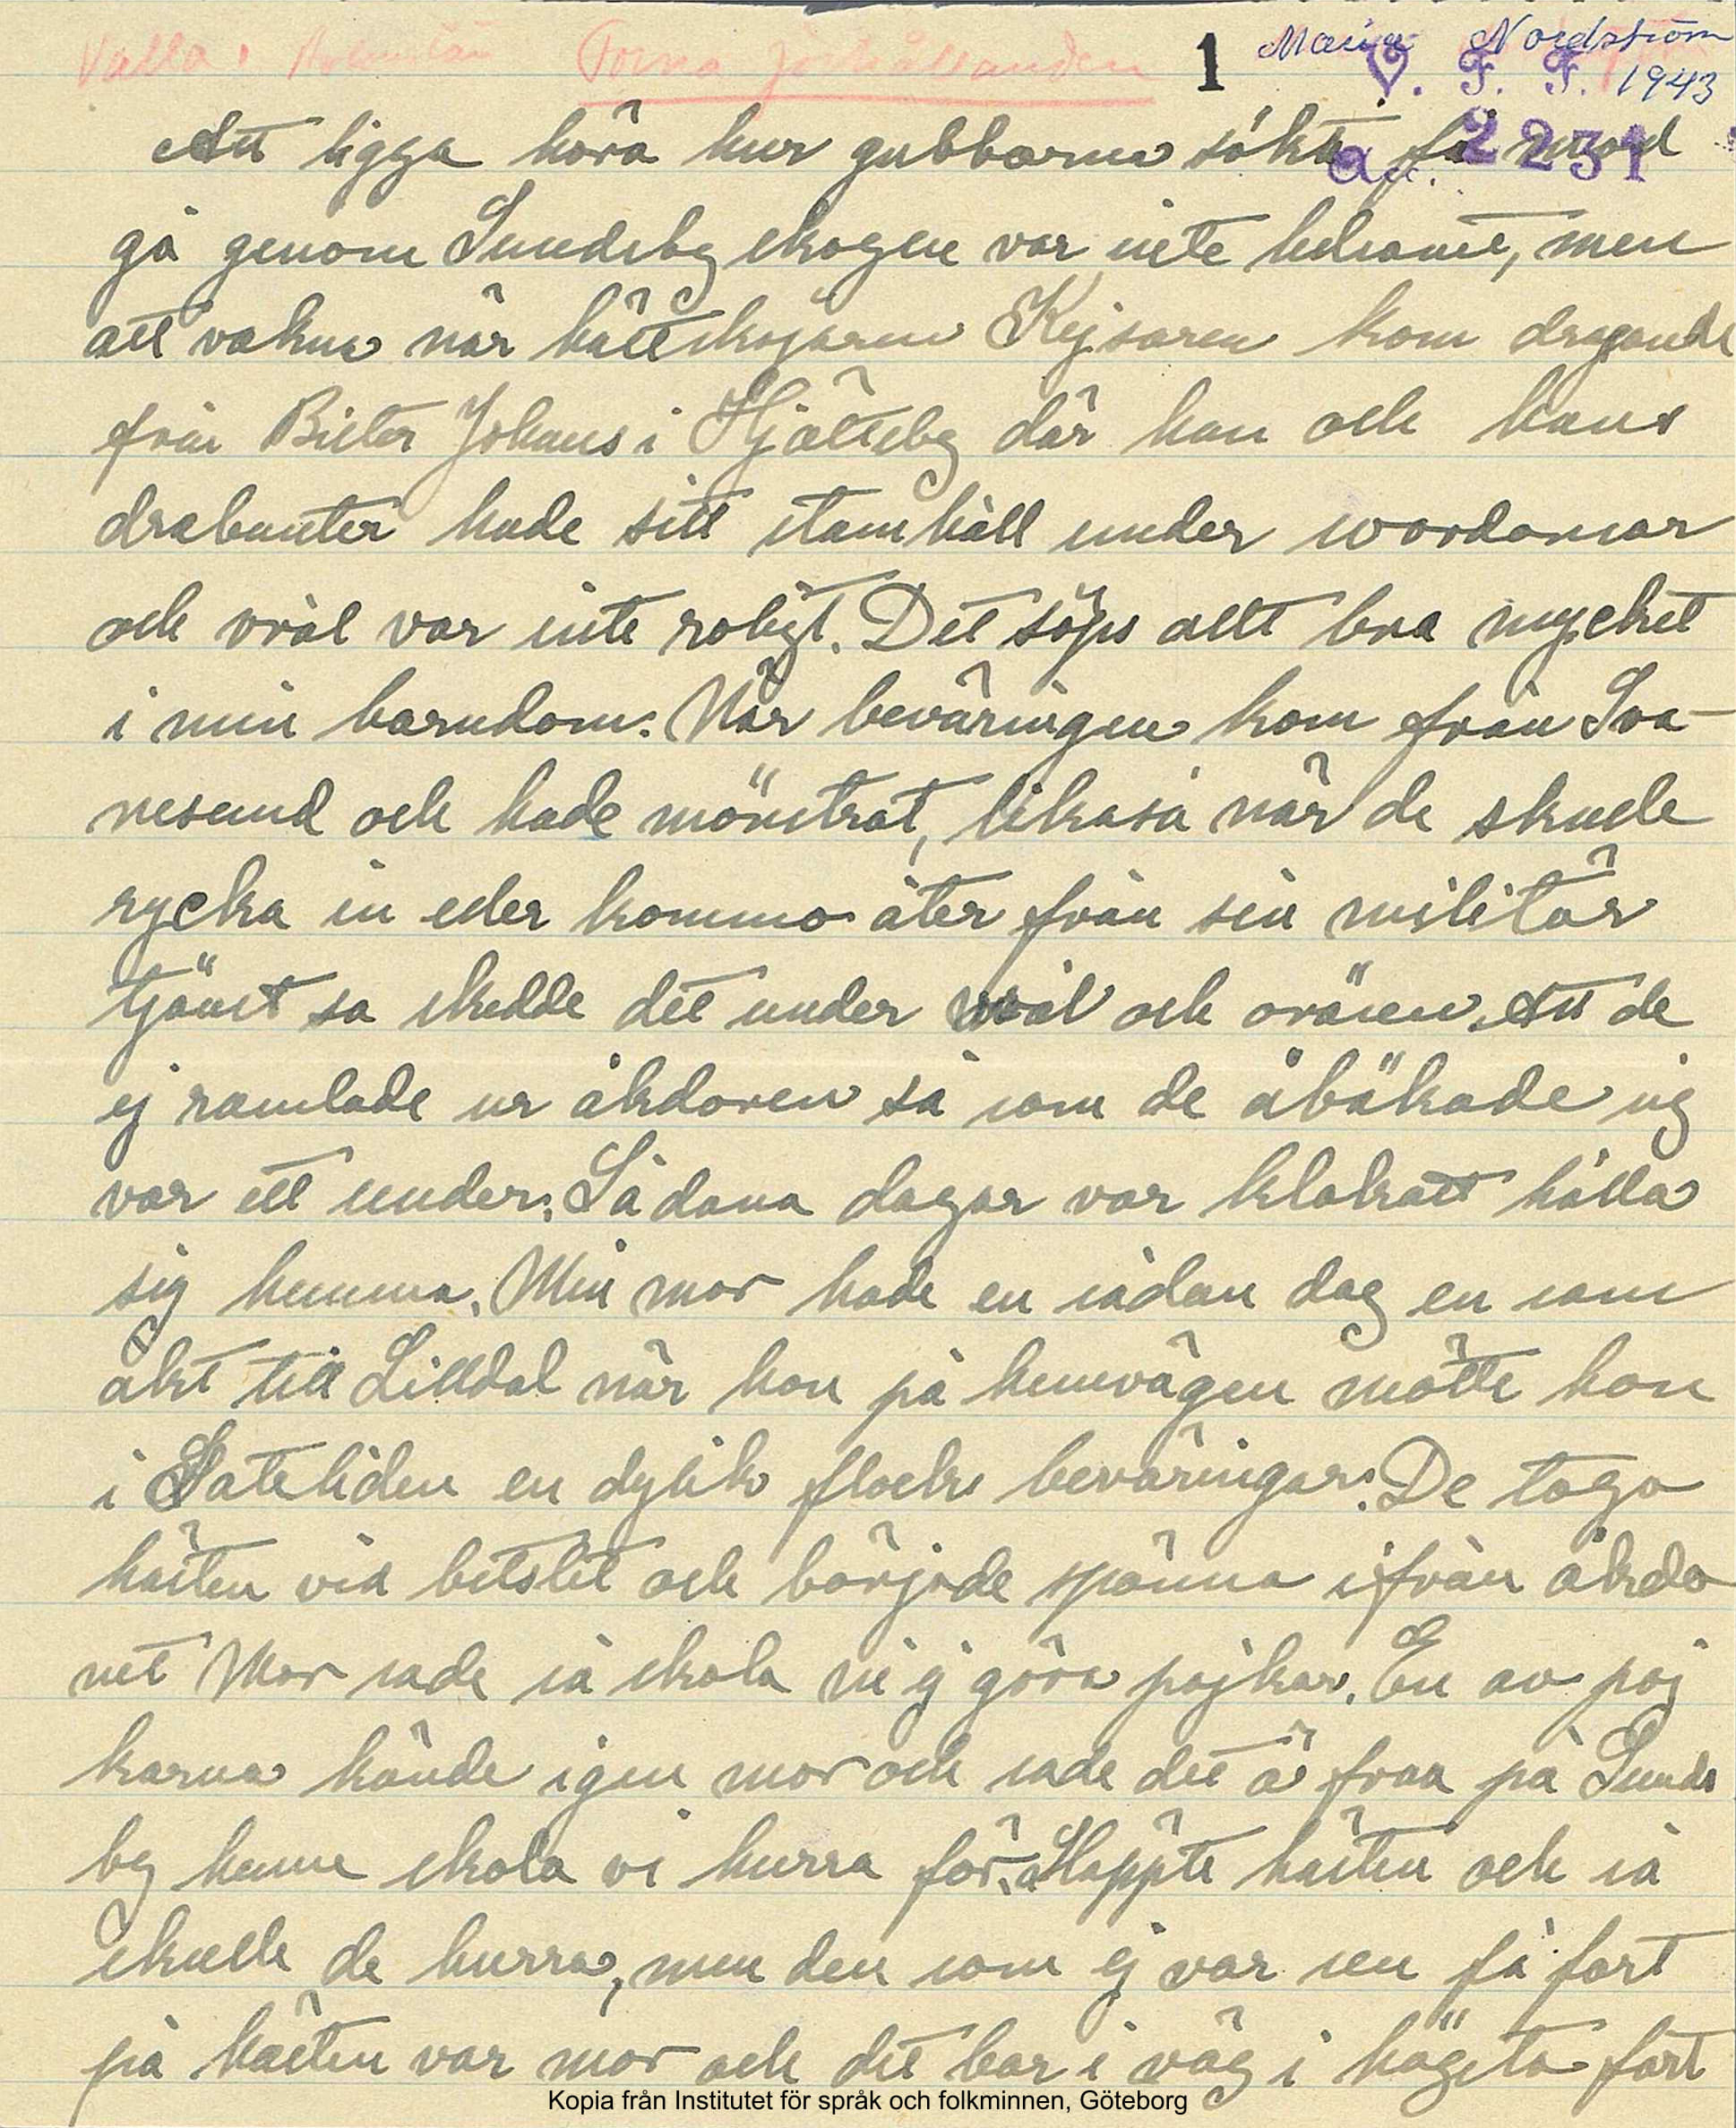 Valla, Forna förhållanden
1 Maria Nordström
V. F. F. 1943
acc. 2231
Att ligga höra hur gubbarna sökte få
gå genom Sundsby skogen var inte behamt, men
att vakna när båtskojaren Kejsaren kom dragande
från Johans i Hjälteby där han och hans
drabanter hade sitt stamhåll under svordomar
och vrål var inte roligt. Det söps allt bra mycket
i min barndom. När beväringen kom från Sva-
nesund och hade mönstrat, likaså när de skude
rycka in eder kommo åter från sin militär
tjänst sa skedde det under vrål och oväsen. Att de
ej ramlade ur åkdoren så som de åbäkade sig
var ett under. Sådana dagar var klokast hålla
sig hemma. Min mor hade en sådan dag en som
åkt till Lilldal när hon på hemvägen mötte hon
i Slateliden en dylik flock beväringar. De togo
hästen vid betslet och började spänna ifrån åkdo
net Mor sade så skola ni ej göra pojkar. En av poj
karna kände igen mor och sade det ä fraa på Sunds
by henne skola vi hurra för. Släppte hästen och så
skulle de hurra, men den som ej var sen få fart
på hästen var mor och det bar i väg i högsta fart
Kopia från Institutet för språk och folkminnen, Göteborg